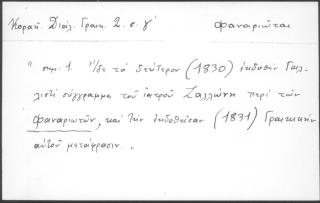 Κοραῆ Διάλ. Γραικ. 2. σ. γ´ φαναριῶται
" σημ. 1. Ἴδε τὸ δεύτερον (1830) ἐκδοθὲν Γαλ-
λιστὶ σύγγραμμα τοῦ ἰατροῦ Ζαλλώνη περὶ τῶν
φαναριωτῶν, καὶ τὴν ἐκδοθεῖσαν (1831) Γραικικὴν
αὐτοῦ μετάφρασιν. "